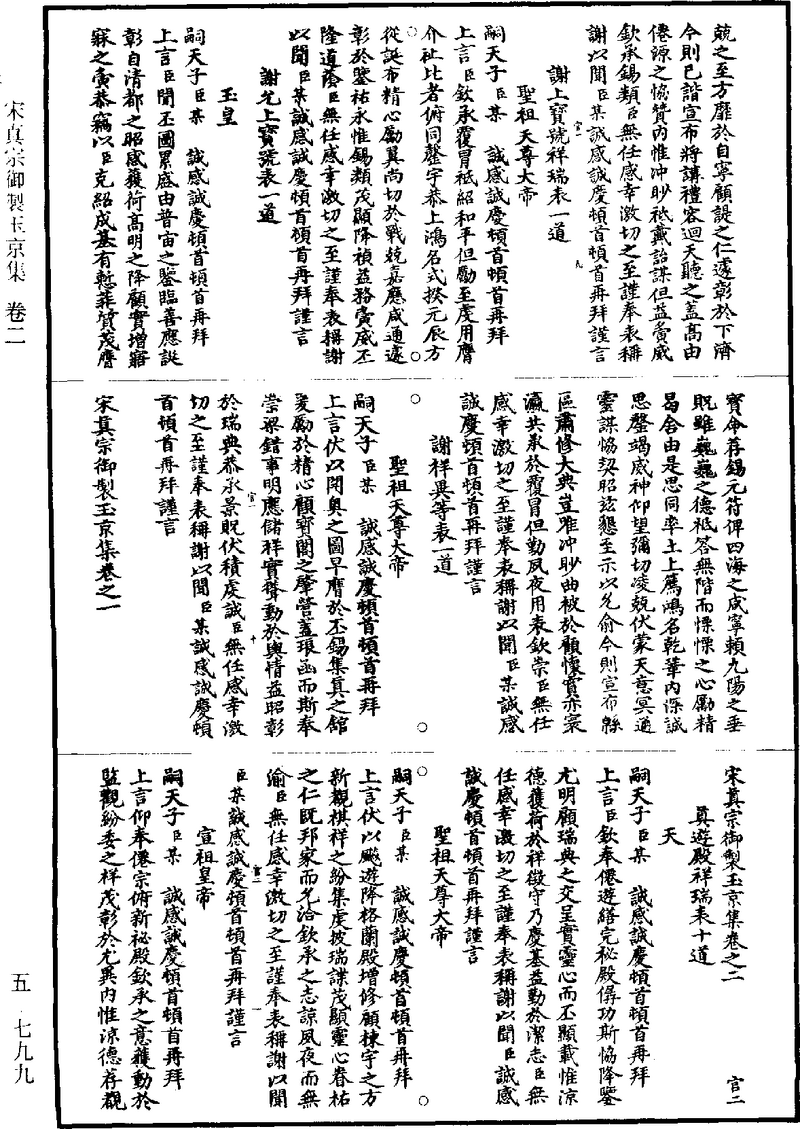 兢之至方靡於自寧顧諟之仁遽彰於下濟
今則已諧宣布將講禮容迴天聽之蓋高由
僊源之恊贊內惟沖眇祇戴詒謀但益夤威
欽承錫類臣無任感幸激切之至謹奉表稱
謝以聞臣某誠感誠慶頓首頓首再拜謹言
謝上寶號祥瑞表一道
聖祖天尊大帝
嗣天子臣某 誠感誠慶頓首頓首再拜
上言臣欽承覆冒祗紹和平但勵至虔用膺
介祉比者俯同罄宇恭上鴻名式揆元辰方
從誕布精心勵翼尚切於戰兢嘉應咸通遽
彰於鑒祐永惟錫類茂顯降禎益務夤威丕
隆道蔭臣無任感幸激切之至謹奉表稱謝
以聞臣某誠感誠慶頓首頓首再拜謹言
謝允上寶號表一道
玉皇
嗣天子臣某 誠感誠慶頓首頓首再拜
上言臣聞丕圖累盛由昔宙之鑒臨善應誕
彰自清都之昭感獲荷高明之降顧實增寤
寐之夤恭竊以臣克紹成基有慙菲質茂膺
寶命荐錫元符俾四海之咸寧賴九陽之垂
貺雖巍巍之德祗答無階而慄慄之心勵精
曷舍由是思同率土上薦鴻名乾鞏內深誠
思罄竭威神仰望彌切凌兢伏蒙天意冥通
靈謀恊契昭玆懇至示以允俞今則宣布緜
區肅修大典豈惟沖眇曲被於顧懷實亦寰
瀛共承於覆冒但勤夙夜用表欽崇臣無任
感幸激切之至謹奉表稱謝以聞臣某誠感
誠慶頓首頓首再拜謹言
謝祥異等表一道
聖祖天尊大帝
嗣天子臣某 誠感誠慶頓首頓首再拜
上言伏以閟奧之圖早膺於丕錫集真之館
爰勵於精心顧寶閣之肇營蓋琅函而斯奉
崇梁錯事明應儲祥實聳動於輿情益昭彰
於瑞典恭承景貺伏積虔誠臣無任感幸激
切之至謹奉表稱謝以聞臣某誠感誠慶頓
首頓首再拜謹言
宋真宗御製玉京集卷之一
宋真宗御製玉京集卷之二 官二
真遊殿祥瑞表十道
天
嗣天子臣某 誠感誠慶頓首頓首再拜
上言臣欽奉僊遊繕完祕殿僝功斯恊降鑒
尤明顧瑞典之交呈實靈心而丕顯載惟涼
德獲荷於祥徵守乃慶基益勤於潔志臣無
任感幸激切之至謹奉表稱謝以聞臣誠感
誠慶頓首頓首再拜謹言
聖祖天尊大帝
嗣天子臣某 誠感誠慶頓首頓首再拜
上言伏以飈遊降格蘭殿增修顧棟宇之方
新觀祺祥之紛集虔披瑞諜茂顯靈心眷祐
之仁既邦家而允洽欽承之志諒夙夜而無
渝臣無任感幸激切之至謹奉表稱謝以聞
臣某誠感誠慶頓首頓首再拜謹言
宣祖皇帝
嗣天子臣某 誠感誠慶頓首頓首再拜
上言仰奉僊宗俯新祕殿欽承之意雖動於
監觀紛委之祥茂彰於尤異內惟涼德荐觀
宋真宗御製玉京集 卷二
五 七九九